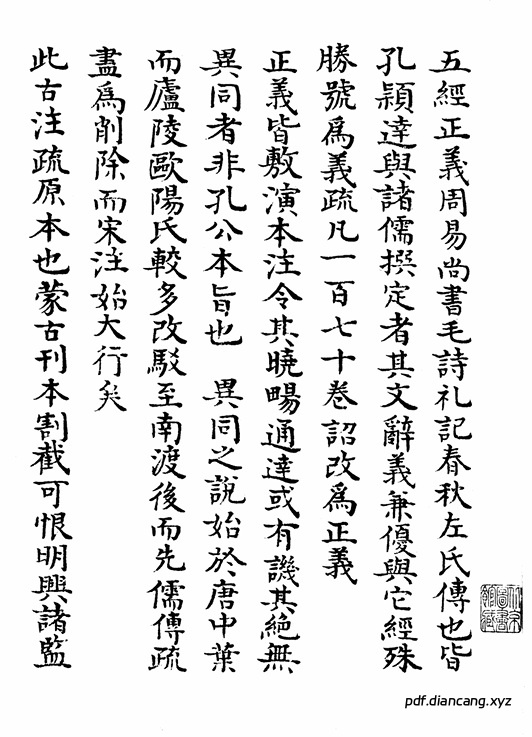 五經正義周易尚書毛詩礼記春秋左氏傳也皆
孔穎達與諸儒撰定者其文辭義兼優與它經殊
勝號爲義疏凡一百七十卷詔改爲正義
正義皆敷演本注令其曉暢通達或有譏其絕無
異同者非孔公本旨也 異同之說始於唐中葉
而廬陵歐陽氏較多改駁至南渡後而先儒傳疏
盡爲削除而宋注始大行矣
此古注疏原本也蒙古刊本割截可恨明興諸監
pdf.diancang.xyz